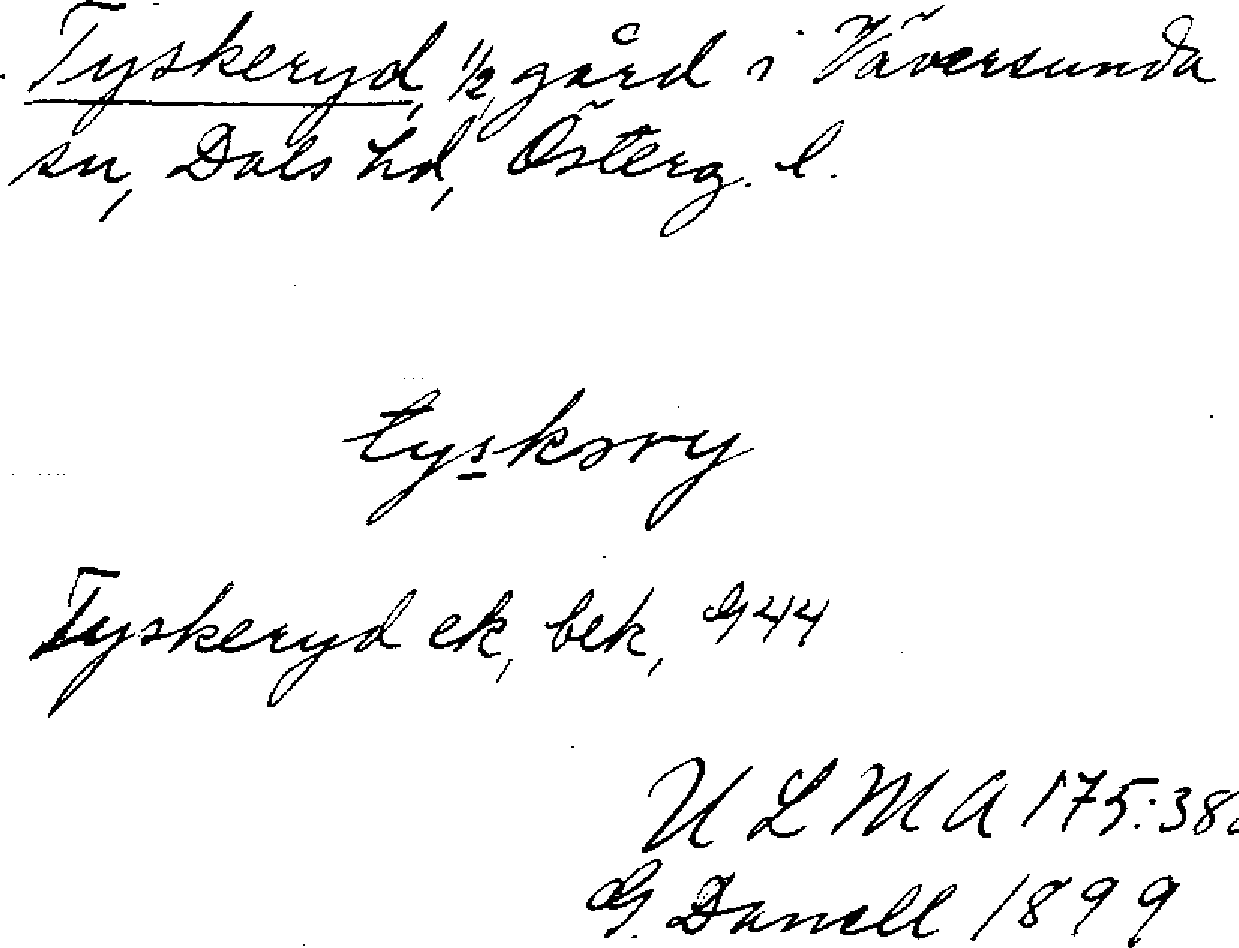 Tyskeryd, 1/2 gård i Väversunda
sn, Dals hd, Österg. l.
tyskəry
Tyskeryd ek, bek, G44
U L M A 175:38
G. Danell 1899